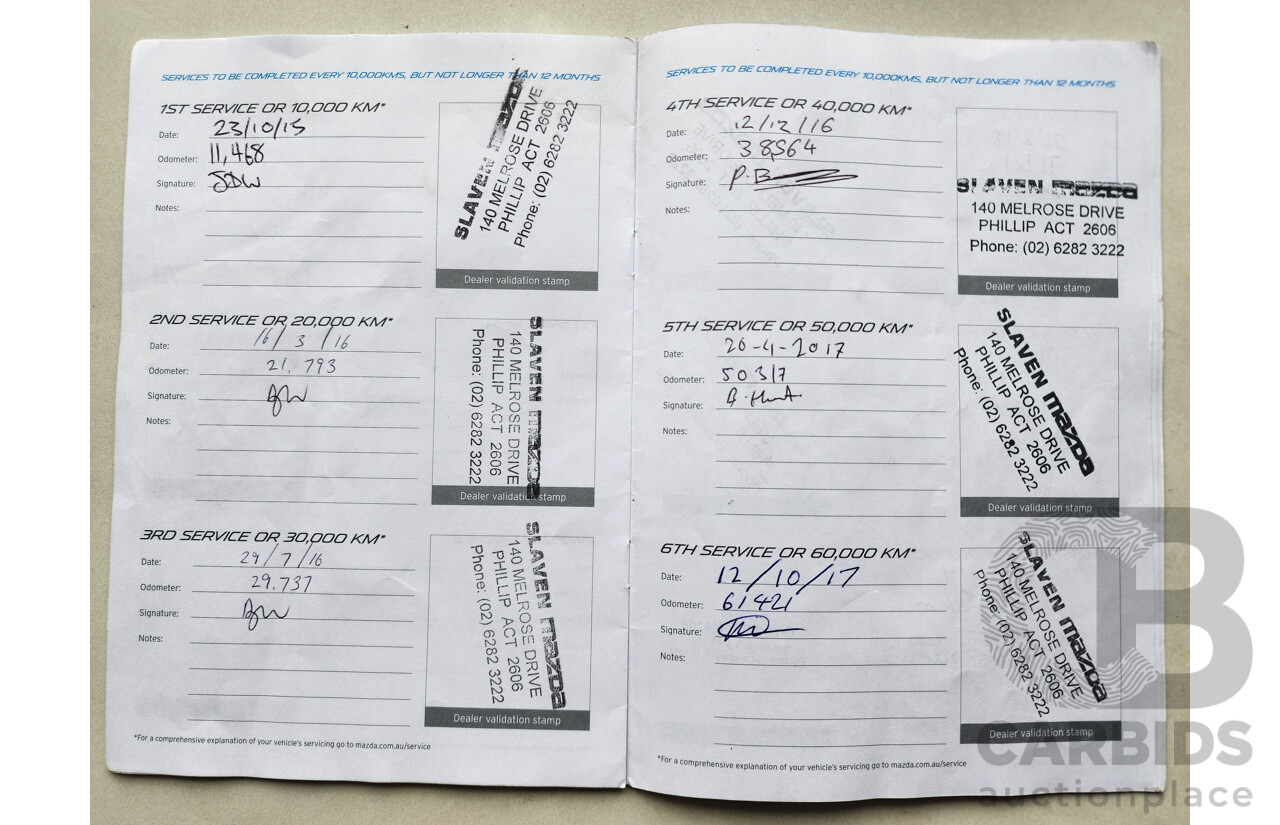 SERVICES TO BE COMPLETED EVERY 10,000KMS, BUT NOT LONGER THAN 12 MONTHS
1ST SERVICE OR 10,000 KM*
Date: 23/10/15
Odometer: 11,468
Signature: JDW
Notes:
SLAVEN mazda
140 MELROSE DRIVE
PHILLIP ACT 2606
Phone: (02) 6282 3222
Dealer validation stamp
2ND SERVICE OR 20,000 KM*
Date: 16/3/16
Odometer: 21.793
Signature:
Notes:
SLAVEN mazda
140 MELROSE DRIVE
PHILLIP ACT 2606
Phone: (02) 6282 3222
Dealer validation stamp
3RD SERVICE OR 30,000 KM*
Date: 29/7/16
Odometer: 29.737
Signature:
Notes:
SLAVEN mazda
140 MELROSE DRIVE
PHILLIP ACT 2606
Phone: (02) 6282 3222
Dealer validation stamp
*For a comprehensive explanation of your vehicle's servicing go to mazda.com.au/service
SERVICES TO BE COMPLETED EVERY 10,000KMS, BUT NOT LONGER THAN 12 MONTHS
4TH SERVICE OR 40,000 KM*
Date: 12/12/16
Odometer: 38,564
Signature: P.B
Notes:
SLAVEN mazda
140 MELROSE DRIVE
PHILLIP ACT 2606
Phone: (02) 6282 3222
Dealer validation stamp
5TH SERVICE OR 50,000 KM*
Date: 26-4-2017
Odometer: 50317
Signature: B. Hunt
Notes:
SLAVEN mazda
140 MELROSE DRIVE
PHILLIP ACT 2606
Phone: (02) 6282 3222
Dealer validation stamp
6TH SERVICE OR 60,000 KM*
Date: 12/10/17
Odometer: 61421
Signature:
Notes:
SLAVEN mazda
140 MELROSE DRIVE
PHILLIP ACT 2606
Phone: (02) 6282 3222
Dealer validation stamp
*For a comprehensive explanation of your vehicle's servicing go to mazda.com.au/service
CARBIDS
auctionplace